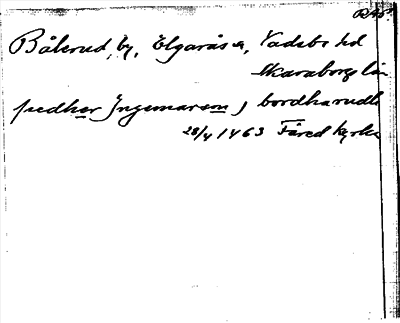 Bålerud, by, Elgarås sn, Vadsbo hd
Skaraborgs län
pedher Ingemarson j bordharudh
28/4 1463 Fåred kyrka